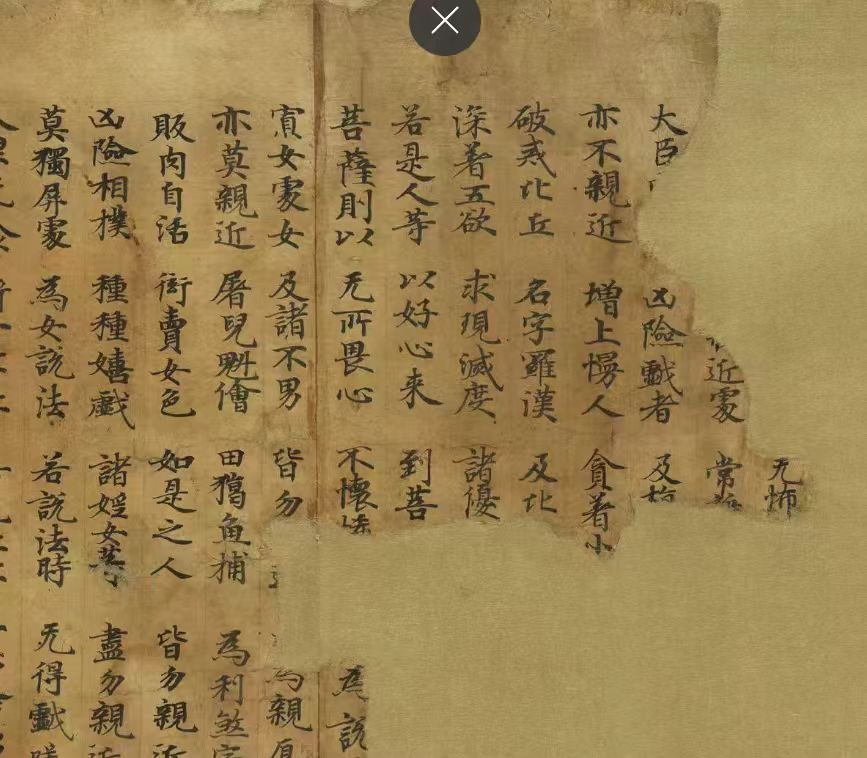 无怖
近處 常
大臣 凶險戲者 及旃
亦不親近 增上慢人 貪着小
破戒比丘 名字羅漢 及比
深着五欲 求現滅度 諸優
若是人等 以好心来 到菩
菩薩則以 无所畏心 不懷 為說
寡女處女 及諸不男 皆勿 為親厚
亦莫親近 屠兒魁儈 田獵魚捕 為利煞害
販肉自活 衒賣女色 如是之人 皆勿親近
凶險相撲 種種嬉戲 諸婬女等 盡勿親近
莫獨屏處 為女說法 若說法時 无得戲